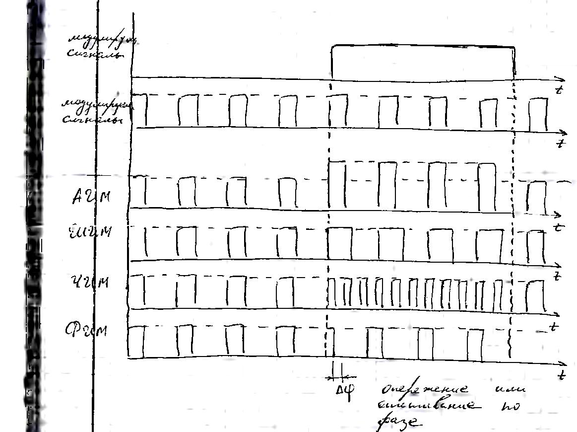 модулируем.
сигналы
t
модулируем.
сигналы
t
АИМ
t
ШИМ
t
ЧИМ
t
ФИМ
t
Δφ опережение или
отставание по
фазе